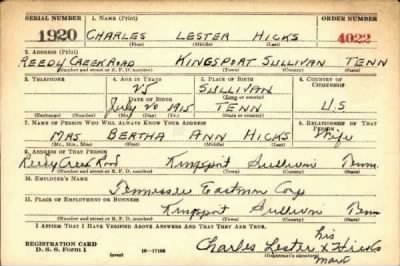 SERIAL NUMBER 1. NAME (Print) ORDER NUMBER
1920 CHARLES LESTER HICKS 4022
(First) (Middle) (Last)
2. ADDRESS (Print)
REEDY CREEK ROAD KINGSPORT SULLIVAN TENN
(Number and street or R. F. D. number) (Town) (County) (State)
3. TELEPHONE 4. AGE IN YEARS 5. PLACE OF BIRTH 6. COUNTRY OF CITIZENSHIP
25 SULLIVAN
DATE OF BIRTH (Town or county)
July 20 1915 TENN U.S
(Exchange) (Number) (Mo.) (Day) (Yr.) (State or country)
7. NAME OF PERSON WHO WILL ALWAYS KNOW YOUR ADDRESS 8. RELATIONSHIP OF THAT PERSON
MRS BERTHA ANN HICKS Wife
(Mr., Mrs., Miss) (First) (Middle) (Last)
9. ADDRESS OF THAT PERSON
Reedy Creek Road Kingsport Sullivan Tenn
(Number and street or R. F. D. number) (Town) (County) (State)
10. EMPLOYER'S NAME
Tennessee Eastman Corp
11. PLACE OF EMPLOYMENT OR BUSINESS
Kingsport Sullivan Tenn
(Number and street or R. F. D. number) (Town) (County) (State)
I AFFIRM THAT I HAVE VERIFIED ABOVE ANSWERS AND THAT THEY ARE TRUE.
his
REGISTRATION CARD Charles Lester X Hicks
D. S. S. Form 1 (over) 16-17105 mark